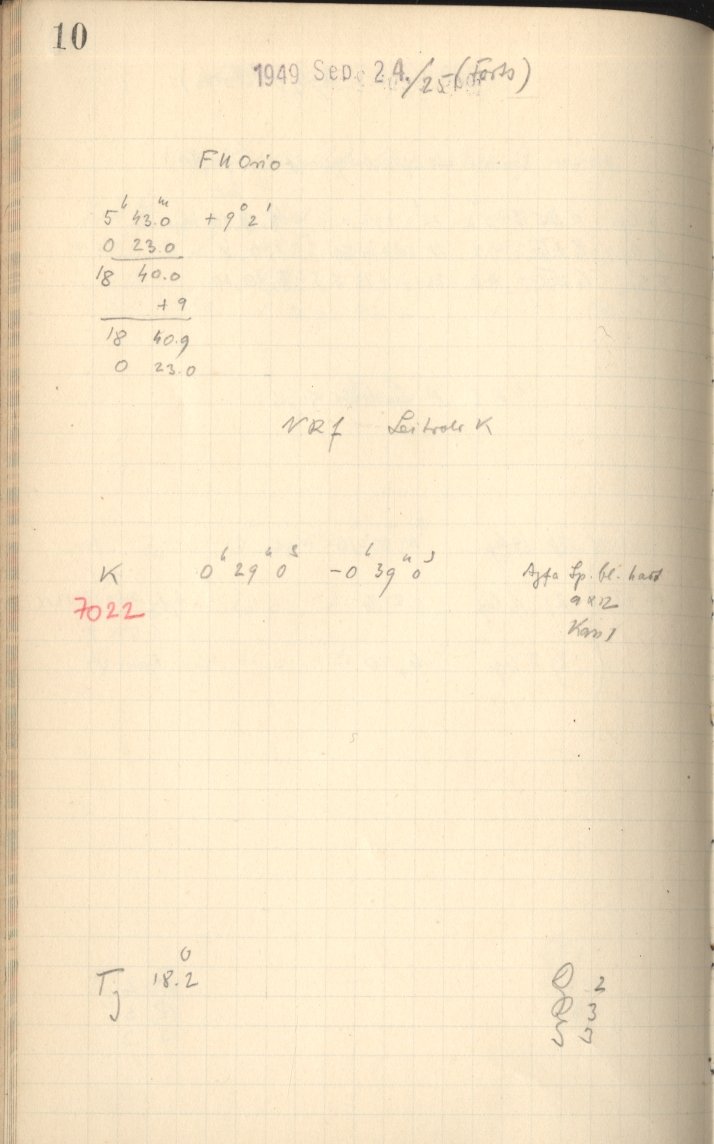 10
1949 Sep. 24./25 (Forts)
FU Orio
5h 43.0m +9° 2'
0 23.0
18 40.0
+9
18 40.9
0 23.0
NRf Leitrohr K
K 0h 29m 0s -0h 39m 0s Agfa Sp. bl. hart
7022 9x12
Kass 1
Tj 18.2°
2
3
3